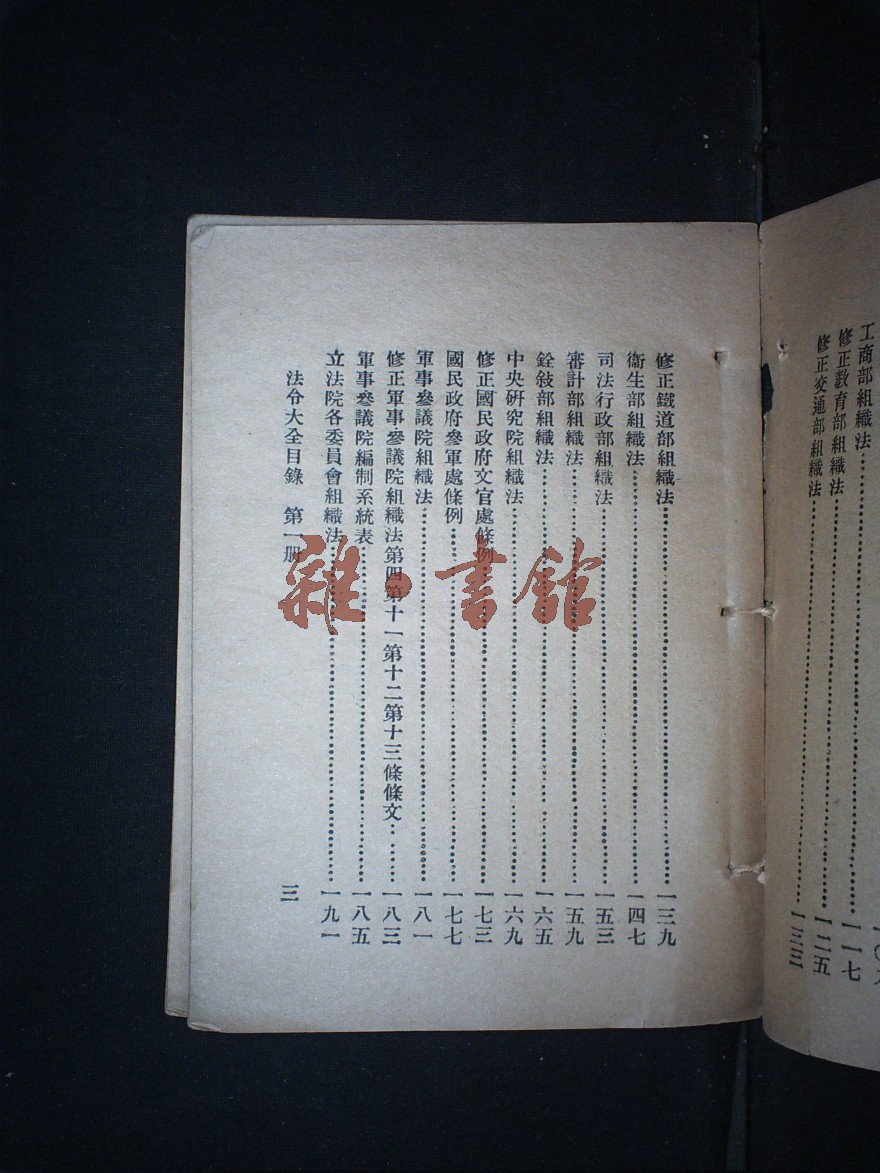 工商部組織法
修正教育部組織法 一一七
修正交通部組織法 一二五
一三三
修正鐵道部組織法 一三九
衞生部組織法 一四七
司法行政部組織法 一五三
審計部組織法 一五九
銓敍部組織法 一六五
中央研究院組織法 一六九
修正國民政府文官處條例 一七三
國民政府參軍處條例 一七七
軍事參議院組織法 一八一
修正軍事參議院組織法第四第十一第十二第十三條條文 一八三
軍事參議院編制系統表 一八五
立法院各委員會組織法 一九一
法令大全目錄 第一册 三
雜·書館